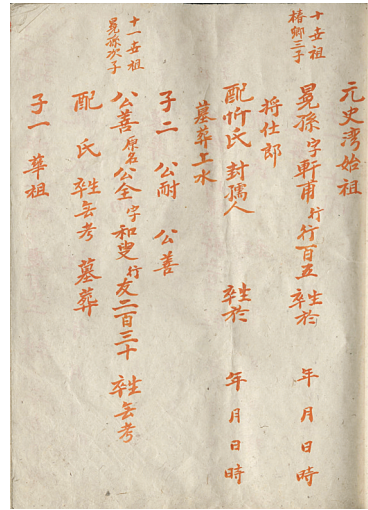 元史湾始祖
十世祖
椿鄉三子
晃孫字軒甫行行百五 生卒於 年月日時
将仕郎
配忻氏封孺人 生卒於 年月日時
墓葬上水
子二 公耐 公善
十一世祖
晃孫次子
公善原名公全字和叟行友二百三十 生卒無考
配 氏 生卒無考 墓葬
子一 華祖